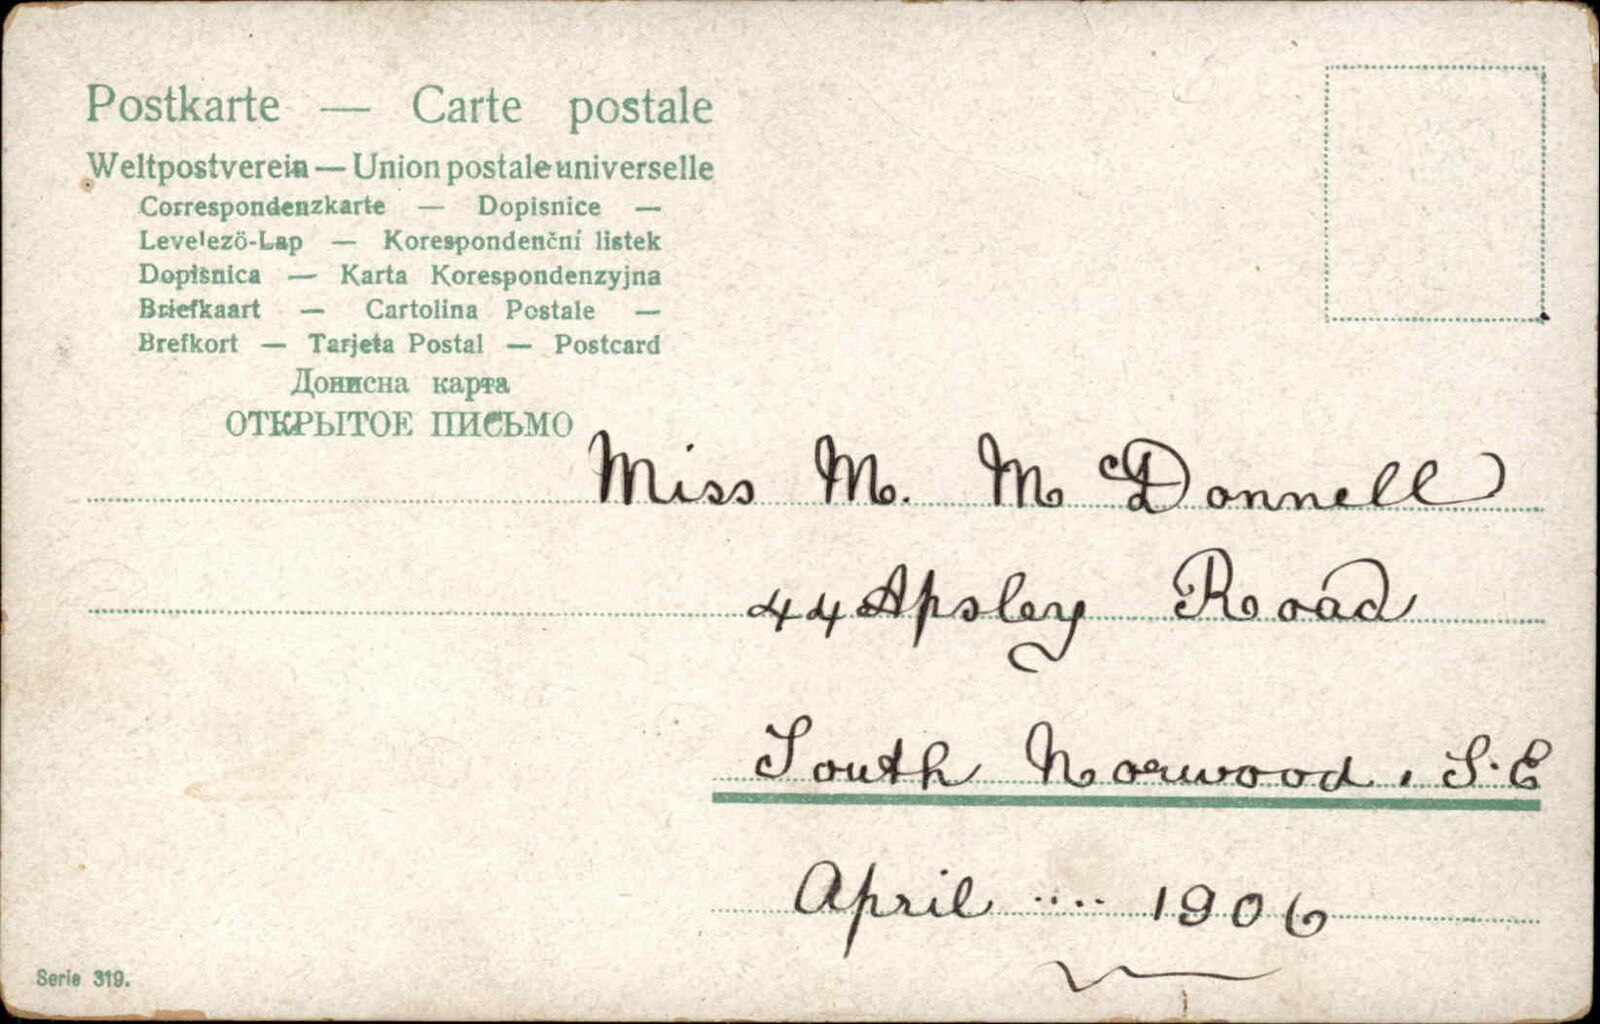 Postkarte — Carte postale
Weltpostverein — Union postale universelle
Correspondenzkarte — Dopisnice —
Levelező-Lap — Korespondenční listek
Dopisnica — Karta Korespondenzyjna
Briefkaart — Cartolina Postale —
Brefkort — Tarjeta Postal — Postcard
Дописна карта
ОТКРЫТОЕ ПИСЬМО
Miss M. Mc Donnell
44 Apsley Road
South Norwood. S.E
April .... 1906
Serie 319.